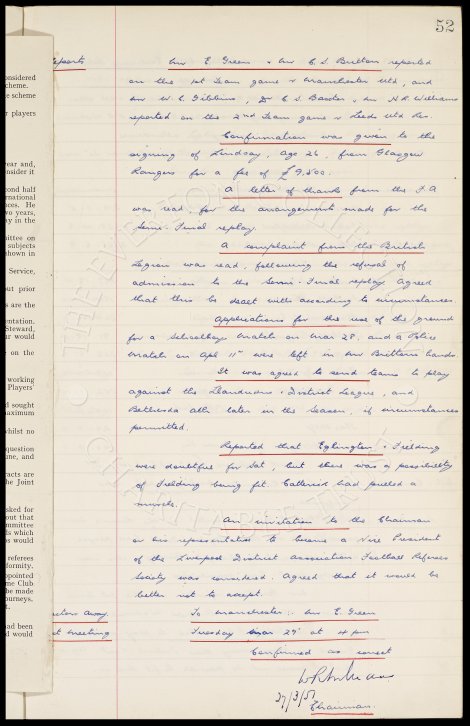 52
Reports
Mr E. Green & Mr C. S. Britton reported
on the 1st Team game v Manchester Utd, and
Mr W. C. Gibbins, Dr C. S. Baxter & Mr N. R. Williams
reported on the 2nd Team game v Leeds Utd Res.
Confirmation was given to the
signing of Lindsay, age 26, from Glasgow
Rangers for a fee of £9,500.
A letter of thanks from the F.A
was read, for the arrangements made for the
Semi-Final replay.
A complaint from the British
Legion was read, following the refusal of
admission to the Semi-Final replay. Agreed
that this be dealt with according to circumstances.
Applications for the use of the ground
for a Schoolboys Match on Mar 28, and a Police
Match on Apl 11th were left in Mr Brittons hands.
It was agreed to send teams to play
against the Llandudno & District League, and
Bethesda Ath later in the Season, if circumstances
permitted.
Reported that Eglington & Fielding
were doubtful for Sat, but there was a possibility
of Fielding being fit. Catterick had pulled a
muscle.
An invitation to the Chairman
or his representative to become a Vice President
of the Liverpool District Association Football Referees
Society was considered. Agreed that it would be
better not to accept.
To Manchester:- Mr E. Green
Directors Away.
Tuesday Mar 27th at 4 pm
Next Meeting
Confirmed as correct
27/3/51
Chairman.
onsidered
cheme.
e scheme
r players
ear and,
nsider it
cond half
rnational
ces. He
wo years,
ay in the
mittee on
subjects
shown in
Service,
ut prior
s are the
entation.
Steward,
r would
on the
working
Players
d sought
maximum
whilst no
question
une, and
racts are
the Joint
asked for
out that
ommittee
ls which
s would
referees
formity.
ppointed
me Club
be made
ourneys,
t.
had been
d would
© THE EVERTON
CHARITABLE TR